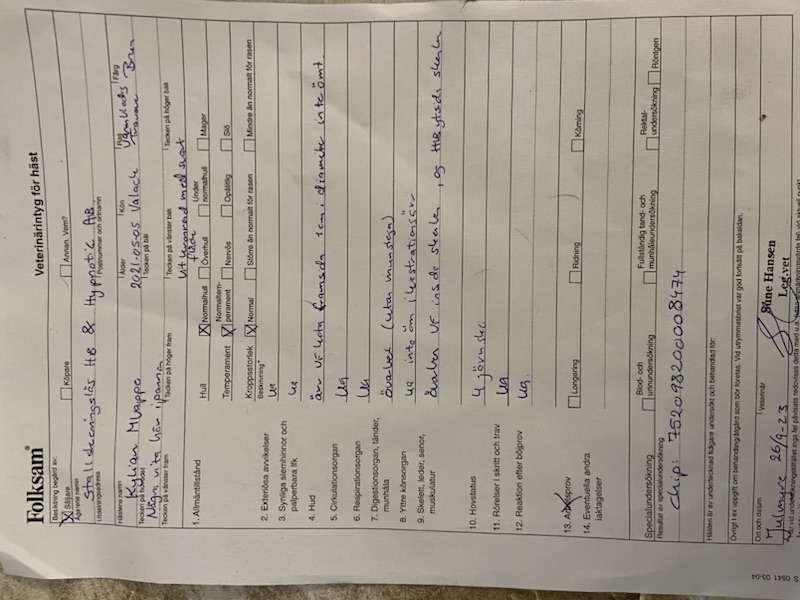 Folksam®
Veterinärintyg för häst
Besiktning begärd av:
X Säljare
Köpare
Annan. Vem?
Ägarens namn
Stall deckningslås HB & Hyppotic AB
Utdelningsadress
Postnummer och ortnamn
Hästens namn
Ålder
Kön
Ras
Färg
Kylian Mbappe
2021-05-05 Valack
Varmblods travare
Brun
Tecken på huvudet
Tecken på bål
Några vita hår i panna
Vit teckenrad med svart
Tecken på vänster fram
Tecken på höger fram
Tecken på vänster bak
Tecken på höger bak
1. Allmäntillstånd
Hull
X Normalhull
Överhull
Under normalhull
Mager
Temperament
X Normaltemperament
Nervös
Opålitlig
Slö
Kroppsstorlek
X Normal
Större än normalt för rasen
Mindre än normalt för rasen
Beskrivning*
2. Exteriösa avvikelser
ua
3. Synliga slemhinnor och palperbara lfk
ua
4. Hud
ärr VF kota framsida 1cm i diameter inte ömt.
5. Cirkulationsorgan
ua
6. Respirationsorgan
ua
7. Digestionsorgan, tänder, munhåla
Övanbet (utan munstege)
8. Yttre könsorgan
ua inte öm i kastrationsärr
9. Skelett, leder, senor, muskulatur
överben VF insida skenben, og HB ytsida skenben
10. Hovstatus
4 järnskor
11. Rörelser i skritt och trav
ua
12. Reaktion efter böjprov
ua.
13. Arbetsprov
Longering
Ridning
Körning
14. Eventuella andra iakttagelser
Specialundersökning
Blod- och urinundersökning
Fullständig tand- och munhåleundersökning
Rektalundersökning
Röntgen
Resultat av specialundersökning
chip: 752098200008474
Hästen är av undertecknad tidigare undersökt och behandlad för:
Övrigt t ex uppgift om behandling/åtgärd som bör företas. Vid utrymmesbrist var god fortsätt på baksidan.
Ort och datum
Veterinär
Julmyra 26/9-23
Sune Hansen
Leg.vet
S 0541 03-04